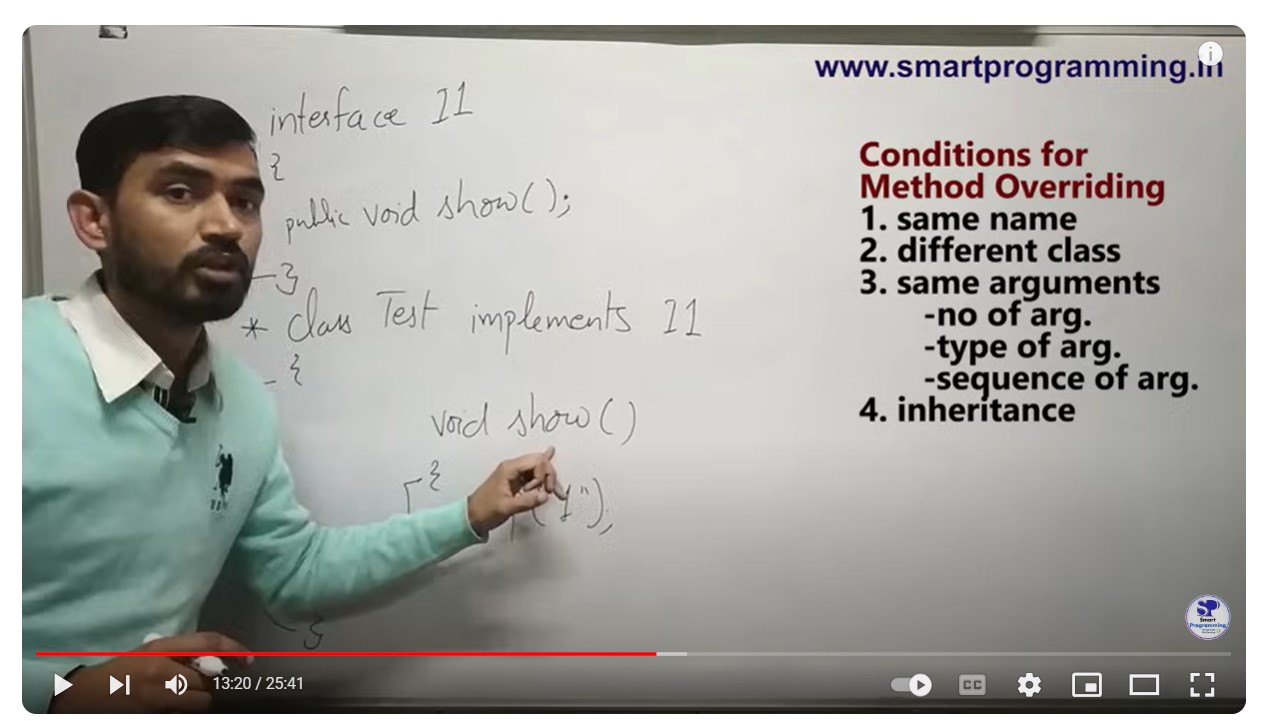 www.smartprogramming.in
interface I1
{
public void show();
}
* class Test implements I1
{
void show()
{
("1");
}
Conditions for
Method Overriding
1. same name
2. different class
3. same arguments
-no of arg.
-type of arg.
-sequence of arg.
4. inheritance
SP
Smart
Programming
13:20 / 25:41
CC